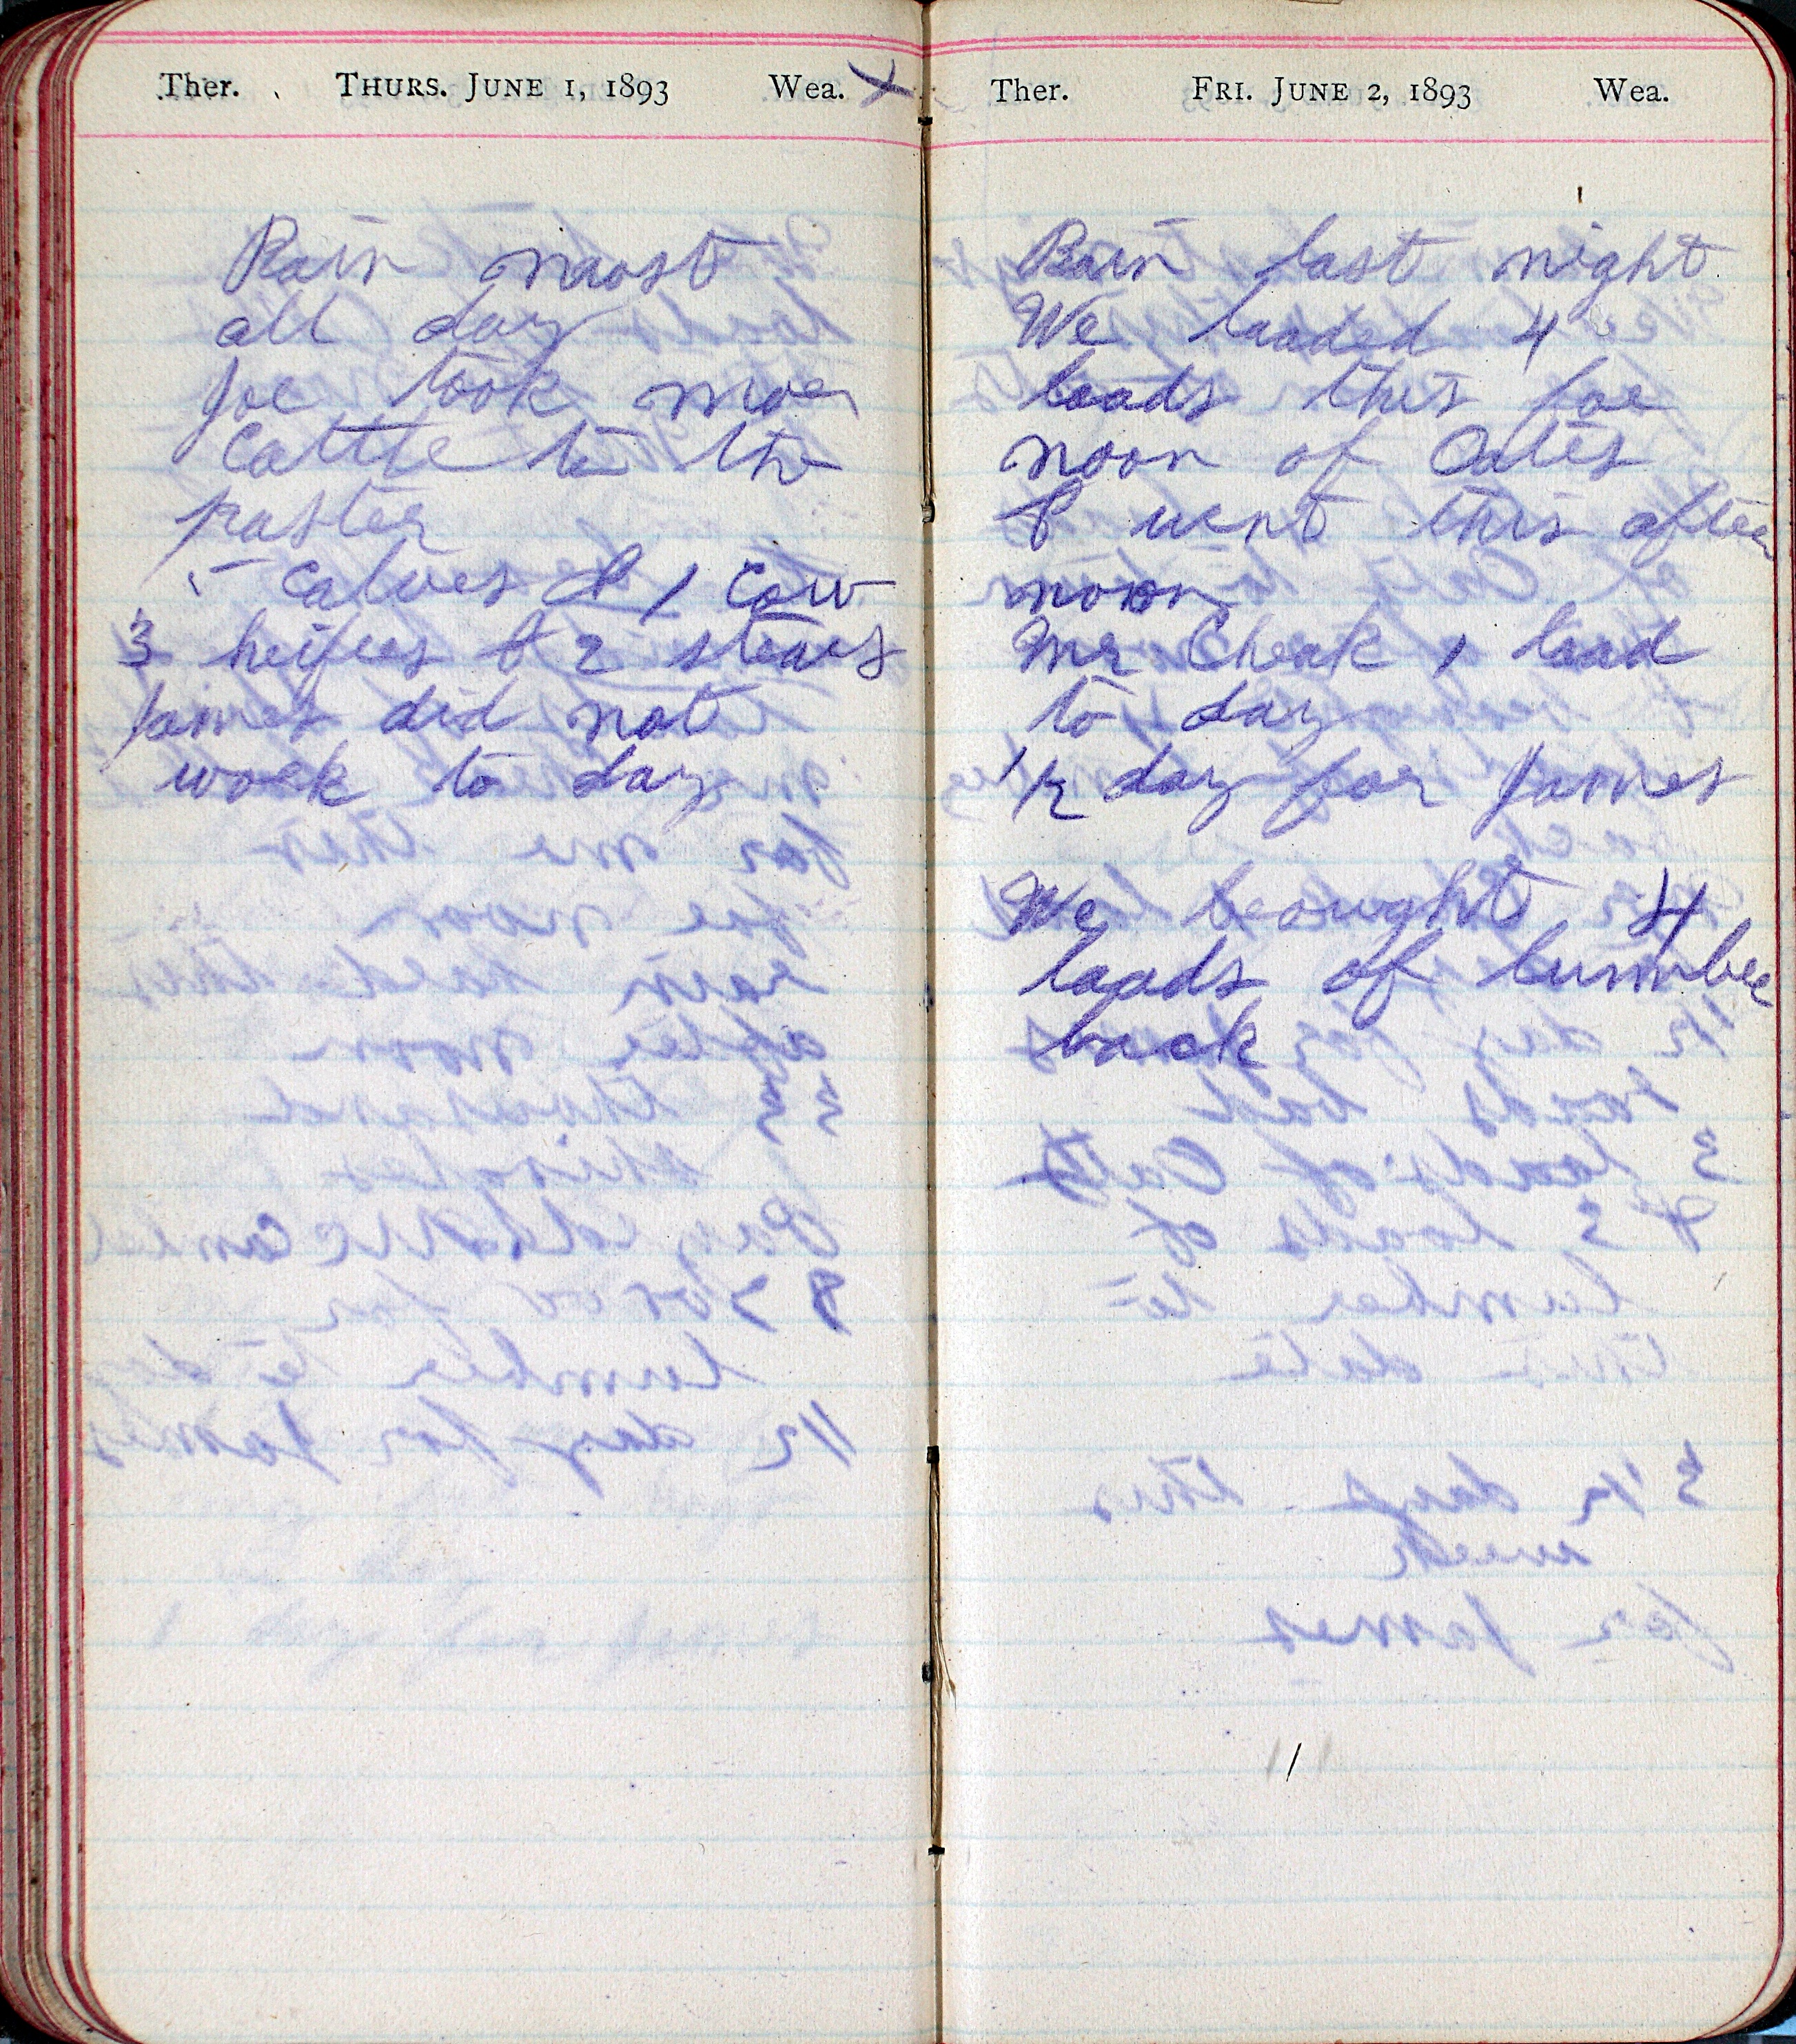 Ther. THURS. JUNE 1, 1893 Wea. X
Rain moost
all day
Joe took moer
Cattle to the
paster
5 Calves & 1 Cow
3 heifers & 2 stears
James did not
work to day
Ther. FRI. JUNE 2, 1893 Wea.
Rain last night
We loaded 4
loads this foe
noon of Oates
& went this after
noon
Mr Cheak 1 load
to day
1/2 day for James
We brought 4
loads of lumber
back